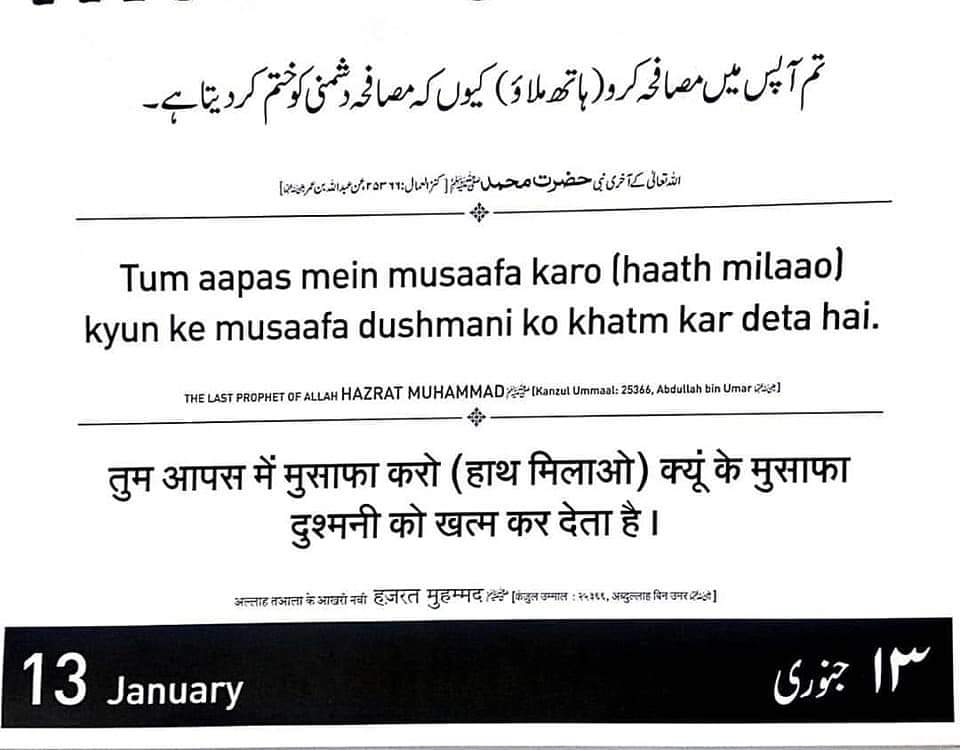 تم آپس میں مصافحہ کرو (ہاتھ ملاؤ) کیوں کہ مصافحہ دشمنی کو ختم کر دیتا ہے۔
اللہ تعالیٰ کے آخری نبی حضرت محمد ﷺ [کنز العمال: ۲۵۳۶۶، عن عبداللہ بن عمر]
Tum aapas mein musaafa karo (haath milaao)
kyun ke musaafa dushmani ko khatm kar deta hai.
THE LAST PROPHET OF ALLAH HAZRAT MUHAMMAD ﷺ [Kanzul Ummaal: 25366, Abdullah bin Umar]
तुम आपस में मुसाफा करो (हाथ मिलाओ) क्यूं के मुसाफा
दुश्मनी को खत्म कर देता है।
अल्लाह तआला के आखरी नबी हज़रत मुहम्मद ﷺ [कंजुल उम्माल : २५३६६, अब्दुल्लाह बिन उमर]
13 January
۱۳ جنوری